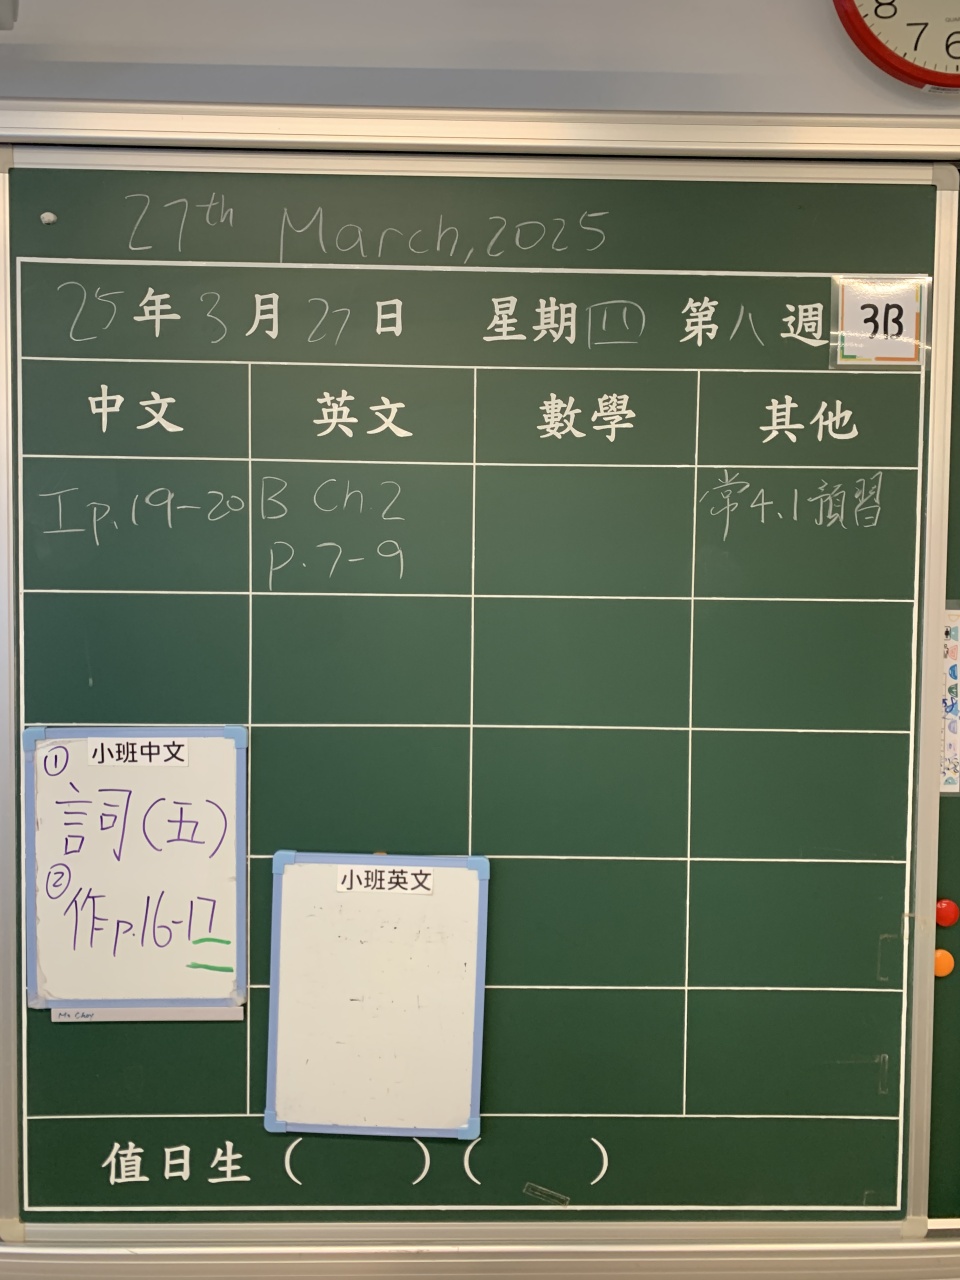 8
7
6
27th March, 2025
25年3月27日 星期四 第八週 3B
中文 英文 數學 其他
工p.19-20
B Ch.2
p.7-9
常4.1預習
小班中文
① 詞(五)
② 作p.16-17
小班英文
值日生( )( )